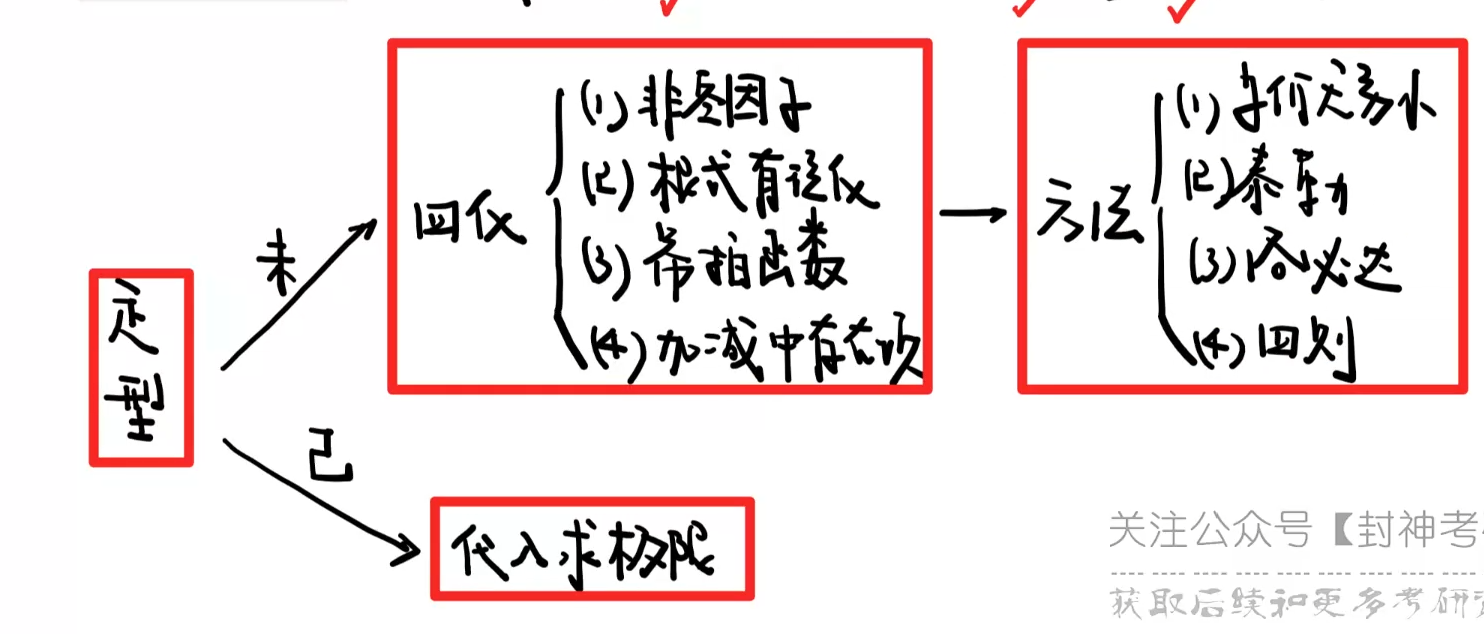 定型
未
四化
(1) 非零因子
(2) 根式有理化
(3) 幂指函数
(4) 加减中存在项
方法
(1) 等价无穷小
(2) 泰勒
(3) 洛必达
(4) 四则
已
代入求极限
关注公众号【封神考
获取后续和更多考研资